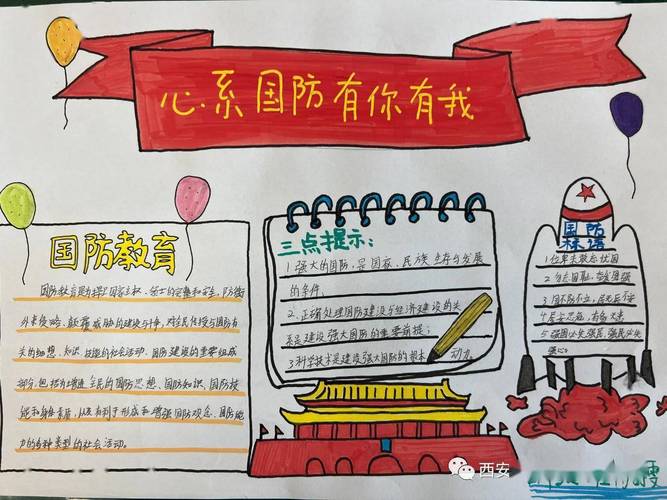 心系国防有你有我
国防教育
国防教育是为捍卫国家主权、领土的完整和安全,防御
外来侵略、颠覆威胁的建设与斗争,对全民传授与国防有
关的思想、知识、技能的社会活动。国防建设的重要组成
部分,包括为增进全民的国防思想、国防知识、国防技
能和身体素质,以及有利于形成和增强国防观念、国防能
力的各种类型的社会活动。
三点提示:
1.强大的国防,是国家、民族生存与发展
的条件。
2、正确处理国防建设与经济建设的关
系是建设强大国防的重要前提;
3.科学技术是建设强大国防的根本动力。
国防
标语
1位卑未敢忘忧国
2勿忘国耻,
3国不防不立,民不防不安
4居安思危,有备无患
5强国必先强民,强民必先
强心。
西安